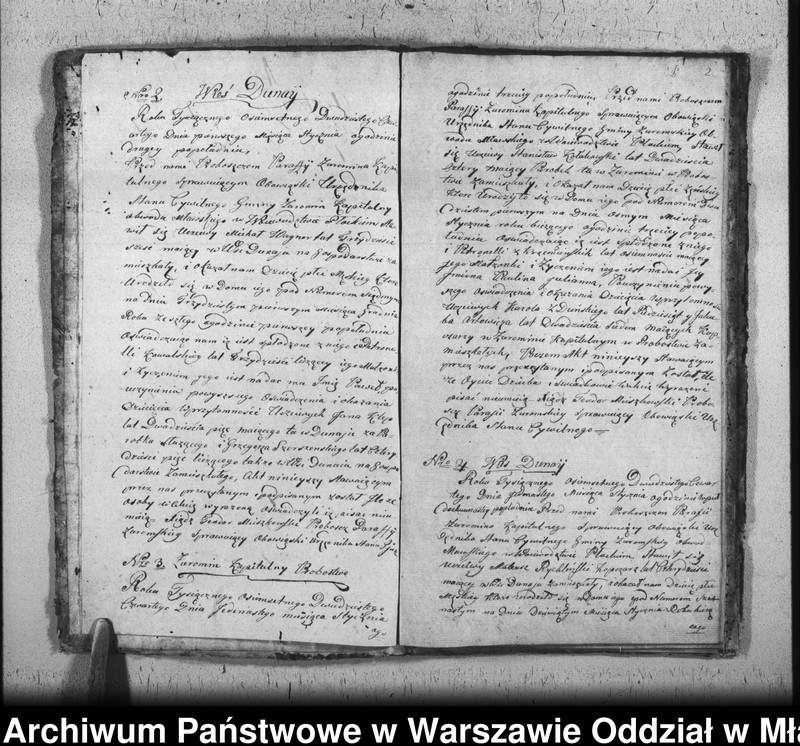 Nro 2 Wieś Dunay
Roku Tysiącznego Osimsetnego Dwudziestego Czwartego
Dnia pierwszego Miesiąca Stycznia o godzinie
drugiey popołudniu,
Przed nami Proboszczem Paraffij Żuromina Kapi
tulnego Sprawuiącym Obowiązki Urzędnika
Stanu Cywilnego Gminy Żuromin Kapitulny
Obwodu Mławskiego w Woiewództwie Płockim Sta
wił się Uczciwy Michał Wagner lat Czterdzieści
sześć maiący w Wsi Dunaju na Gospodarstwie za
mieszkały, i okazał nam Dziecię płci Męskiey które
Urodziło się w Domu iego pod Numerem
na Dniu Trzydziestym pierwszym Miesiąca Grudnia
Roku zeszłego o godzinie pierwszey popołudniu
Oświadczaiąc nam iż iest spłodzone z niego i Petrone
lli Kowalskiey lat Trzydzieści liczącey iego Małżonki
i życzeniem jego iest nadać mu Imię Paweł, po
uczynieniu powyższego Oświadczenia i okazania
Dziecięcia w przytomności Uczciwych Jana
lat Dwadzieścia pięć maiącego tu w Dunaju za Pa
robka służącego i Grzegorza lat Cztery
dzieści pięć liczącego także w Wsi Dunaiu na Gospo
darstwie Zamieszkałego, Akt ninieyszy stawaiącym
przez nas przeczytanym i podpisanym został gdyż
osoby w Akcie wyrażone oświadczyli iż pisać nieu
mieią Xiądz Teodor Miszkowski Proboszcz Paraffij
Żuromskiey Sprawuiący Obowiązki Urzędnika Stanu Cyw:
Nro 3. Żuromin Kapitulny Probostwo
Roku Tysiącznego Osimsetnego Dwudziestego
Czwartego Dnia Jedenastego miesiąca Stycznia
o go
2
ogodzinie trzeciey popołudniu, Przed nami Proboszczem
Paraffij Żuromina Kapitulnego Sprawuiącym Obowiązki
Urzędnika Stanu Cywilnego Gminy Żuromskiey Ob
wodu Mławskiego w Woiewództwie Płockim, Stawił
się Uczciwy Stanisław lat Dwadzieścia
cztery maiący Parobek tu w Żurominie w Probos
twie Zamieszkały, i Okazał nam Dziecię płci żeńskiey
które Urodziło się w Domu iego pod Numerem Dwu
dziestem pierwszym na Dniu Osmym Miesiąca
Stycznia roku bieżącego o godzinie trzeciey popo
łudniu Oświadczaiąc iż iest spłodzone z niego
i Petronelli z lat Osimnaście maiącey
jego Małżonki i Życzeniem iego iest nadać Jey
Imiona Paulina Julianna, Po uczynieniu powyż
szego Oświadczenia i Okazania Dziecięcia w przytomności
Uczciwych Karola Zduńskiego lat Pidziesiąt y Jaku
ba lat Dwadzieścia siedm maiących
w Żurominie Kapitulnym w Probostwie Za
mieszkałych, Poczem Akt ninieyszy Stawaiącym
przez nas przeczytanym i podpisanym został, gdy
że Oyciec Dziecka i świadkowie w Akcie wyrażeni
pisać nieumieią Xiądz Teodor Miszkowski Probo
szcz Parafij Żuromskiey Sprawuiący Obowiązki Urz
ędnika Stanu Cywilnego
Nro 4 Wieś Dunay
Roku Tysiącznego Osimsetnego Dwudziestego Czwar
tego Dnia Jedenastego Miesiąca Stycznia ogodzinie
popołudniu Przed nami Proboszczem Parafij
Żuromina Kapitulnego Sprawuiący Obowiązki Urz
ędnika Stanu Cywilnego Gminy Żuromskiey Obwodu
Mławskiego w Woiewództwie Płockim Stawił się
Uczciwy Mateusz Rychliński lat Czterydzieści
maiący w Wsi Dunaju Zamieszkały, i okazał nam dziecię płci
Męskiey które urodziło się w Domu iego pod Numerem
nastym na Dniu Dziewiątym Miesiąca Stycznia Roku bieżą
cego
Archiwum Państwowe w Warszawie Oddział w Mła